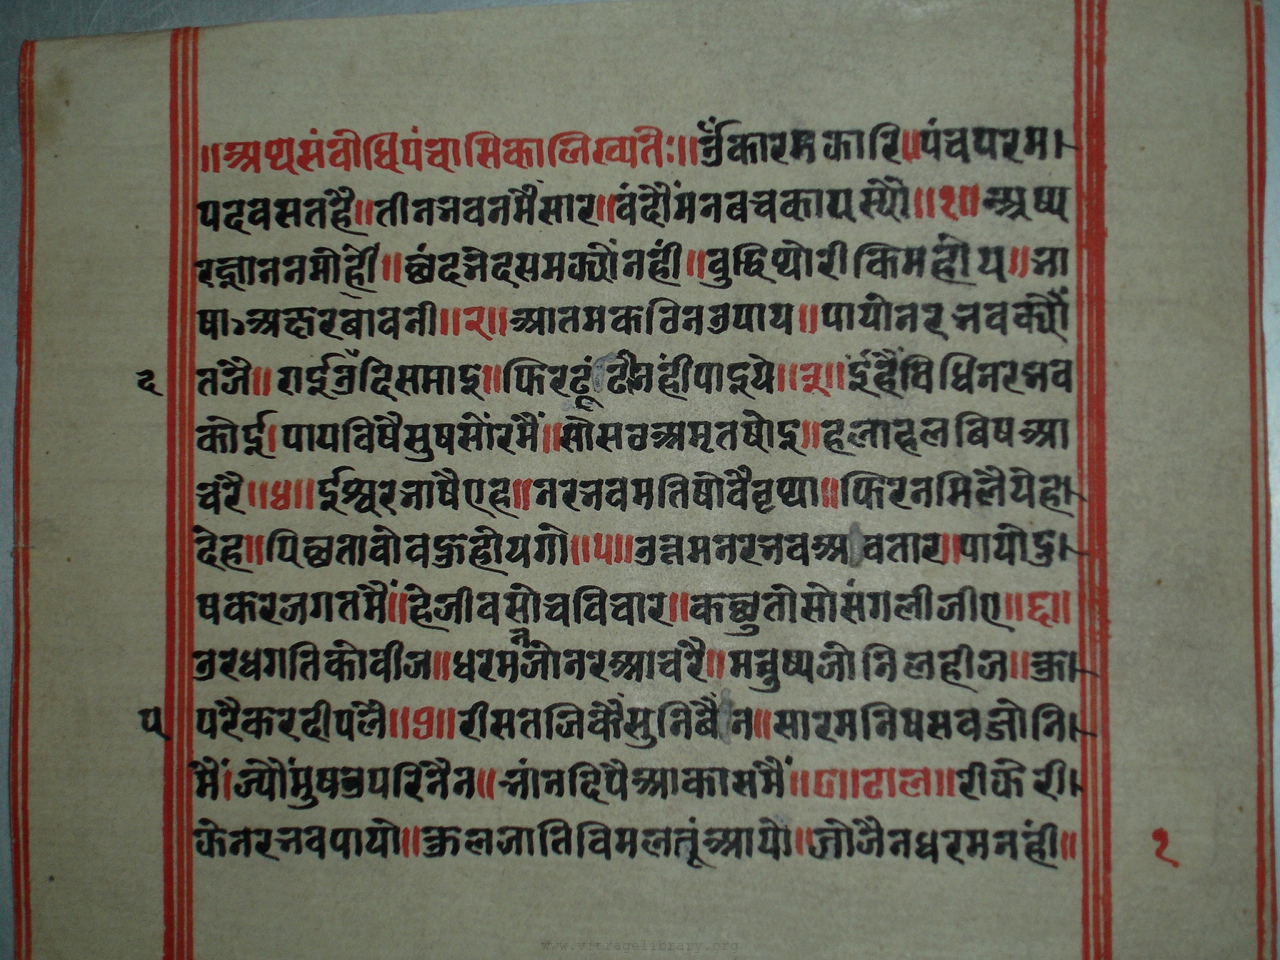 ॥अथसंबोधिपंचासिकालिख्यतेः॥ॐकारमकारि॥पंचपरम।
पदवसतहै॥तीनभवनमैसार॥वंदौंमनबचकायस्यौ॥१॥अष्य
रज्ञाननमोहौ॥छंदभेदसमक्यौंनहीं॥वुद्धिथोरीकिमहोय॥भा
षाअक्षरबावनी॥२॥आतमकठिनउपाय॥पायोनरभवक्यौं
२ तजै॥राईउंदिसमाइ॥फिरढूंढीनहींपाइये॥३॥ईहैंविधिनरभव
कोई।पायविषैसुषसोंरमैं॥सौसठअमृतषोइ॥हलाहलबिषआ
चरै॥४॥ईश्वरभाषैएह॥नरभवमतिषोवैवृथा॥फिरनमिलैयेहा।
देह॥पिछतावोवऊहोयगो॥५॥उत्तमनरभवअवतार॥पायोदु।
षकरजगतमैं॥हेजीवसोचविचार॥कछुतोसोसंगलीजीए॥६॥
उरधगतिकोवीज॥धरमनजोनरआचरै॥मनुष्यजोनिलहीज॥कू।
५ परैकरदीपलै॥७॥रीसतजिकैसुनिबैन॥सारमनिषसवजोनि।
मैं।ज्यौंमुषउपरिनैन॥भांनदिपैआकासमैं॥८॥ढाल॥रीकेरी।
केनरभवपायो॥कूलजातिविमलतूंआयो॥जोजैनधरमनहीं॥
१
www.vitragelibrary.org